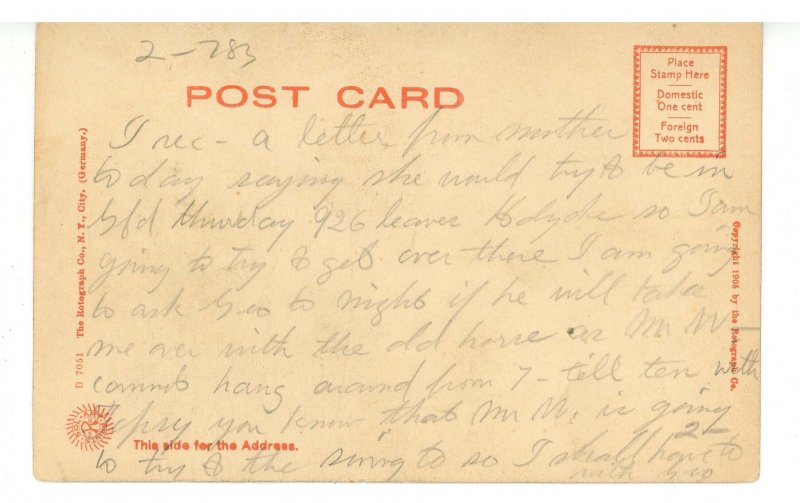 2-783
POST CARD
Place
Stamp Here
Domestic
One cent
Foreign
Two cents
I rec - a letter from mother
to day saying she would try to be in
Gfd thursday 926 leaves so I am
going to try to get over there I am going
to ask Geo to night if he will take
me over with the old horse as Mr W-
cannot hang around from 7 - till ten with
Topsy you know that Mr W. is going 2-
to try to the to so I shall have to
with Geo
D 7051 The Rotograph Co., N. Y., City, (Germany.)
Copyright 1905 by the Rotograph Co.
This side for the Address.